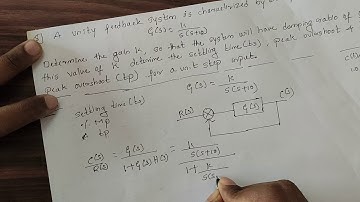 A unity feedback system is characterized by
G(s) = K / s(s+10)
Determine the gain K, so that the system will have damping ratio of
this value of K determine the settling time (ts), peak overshoot &
peak overshoot (tp) for a unit step input.
G(s) = K / s(s+10)
settling time (ts)
% Mp
tp
R(s) G(s) C(s)
C(s)/R(s) = G(s) / 1+G(s)H(s) = K / s(s+10) / 1+ K / s(s